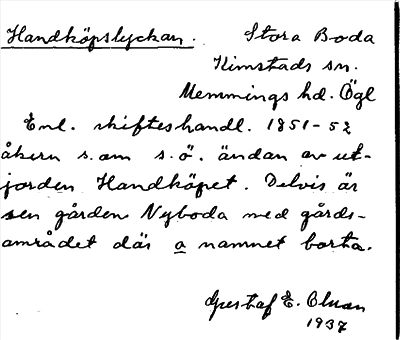 Handköpslyckan. Stora Boda
Kimstads sn.
Memmings hd. Ögl
Enl. skifteshandl. 1851-52
åkern s.om s.ö. ändan av ut-
jorden Handköpet. Delvis är
sen gården Nyboda med gårds-
området där a namnet borta.
Gustaf E. Olman
1937